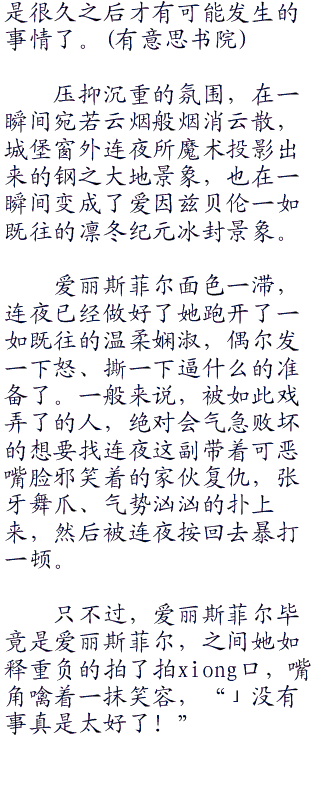 是很久之后才有可能发生的
事情了。(有意思书院)
压抑沉重的氛围，在一
瞬间宛若云烟般烟消云散，
城堡窗外连夜所魔术投影出
来的钢之大地景象，也在一
瞬间变成了爱因兹贝伦一如
既往的凛冬纪元冰封景象。
爱丽斯菲尔面色一滞，
连夜已经做好了她跑开了一
如既往的温柔娴淑，偶尔发
一下怒、撕一下逼什么的准
备了。一般来说，被如此戏
弄了的人，绝对会气急败坏
的想要找连夜这副带着可恶
嘴脸邪笑着的家伙复仇，张
牙舞爪、气势汹汹的扑上
来，然后被连夜按回去暴打
一顿。
只不过，爱丽斯菲尔毕
竟是爱丽斯菲尔，之间她如
释重负的拍了拍xiong口，嘴
角噙着一抹笑容，“」没有
事真是太好了！”